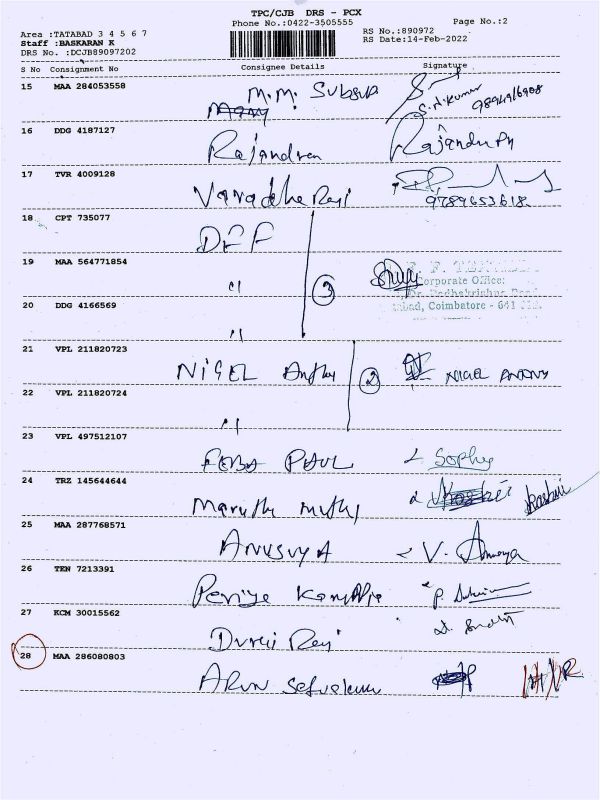 TPC/CJB DRS - PCX
Phone No.:0422-3505555 Page No.:2
Area :TATABAD 3 4 5 6 7 RS No.:890972
Staff :BASKARAN K RS Date:14-Feb-2022
DRS No. :DCJB89097202
S No Consignment No Consignee Details Signature
15 MAA 284053558 M.M. S.N.Kumar
16 DDG 4187127 Rajandran
17 TVR 4009128
9789653618
18 CPT 735077 DFF
19 MAA 564771854 " 3 F. F.
Corporate Office:
20 DDG 4166569 " Coimbatore - 641
21 VPL 211820723 NIGEL Anthy 2 NIGEL ANTONY
22 VPL 211820724 "
23 VPL 497512107 PAUL Sophy
24 TRZ 145644644 Maruthu muthy
25 MAA 287768571 ANUSUYA V.
26 TEN 7213391 Periya P.
27 KCM 30015562
28 MAA 286080803 ARUN Selvakumar